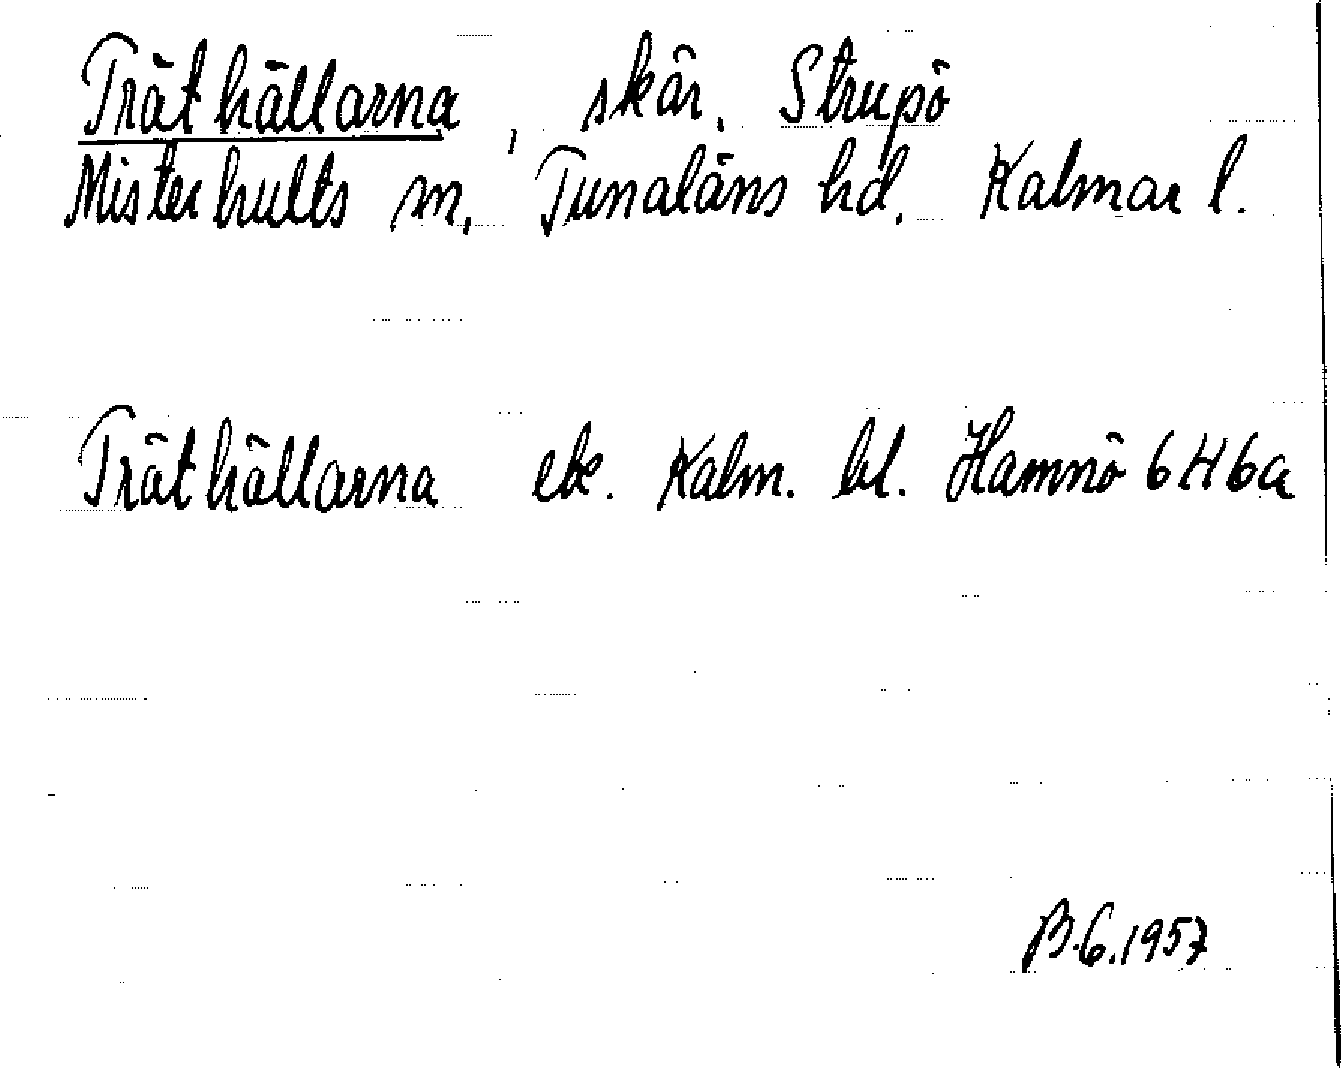 Träthällarna, skär, Strupö
Misterhults sn, Tunaläns hd, Kalmar l.
Träthällarna ek. Kalm. bl. Hamnö 6H6a
B.G.1957